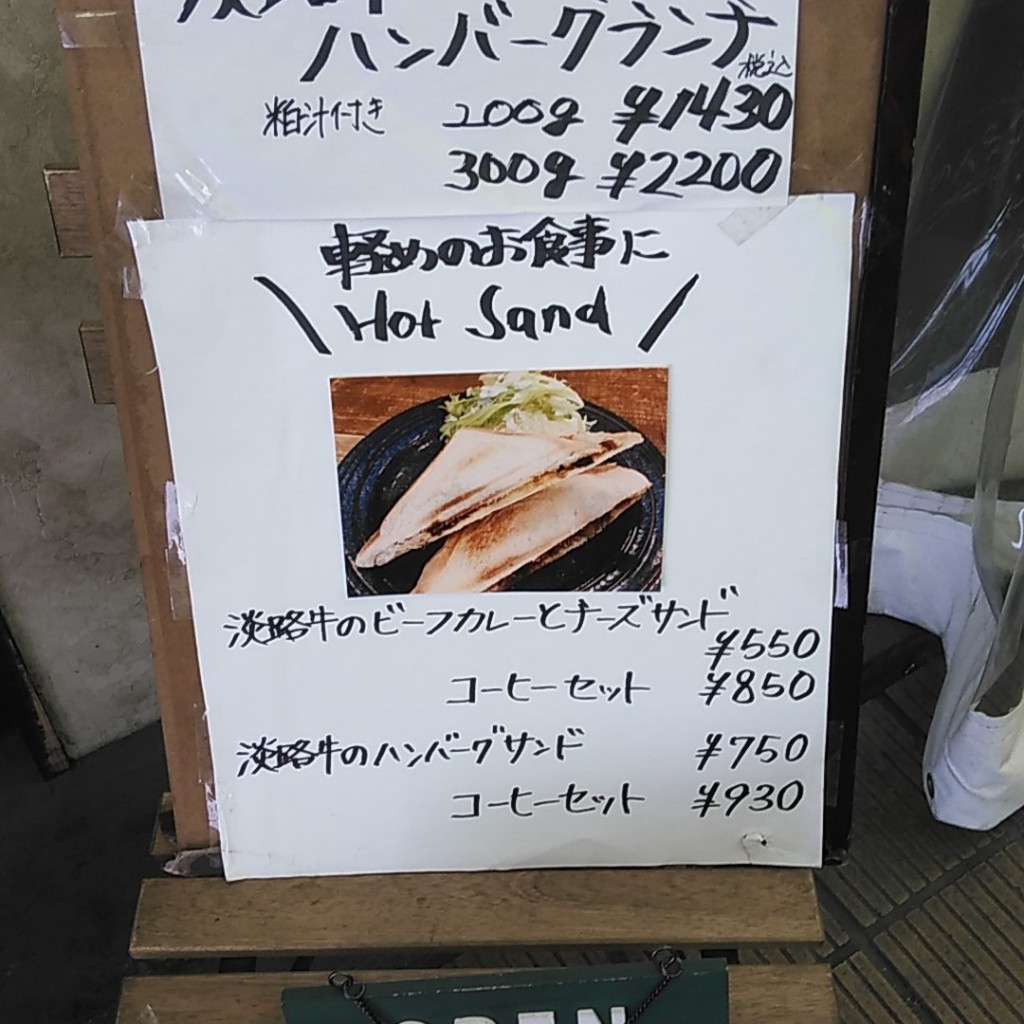 ハンバーグランチ
税込
粕汁付き 200g ¥1430
300g ¥2200
軽めのお食事に
\ Hot Sand /
淡路牛のビーフカレーとチーズサンド
¥550
コーヒーセット ¥850
淡路牛のハンバーグサンド ¥750
コーヒーセット ¥930
OPEN